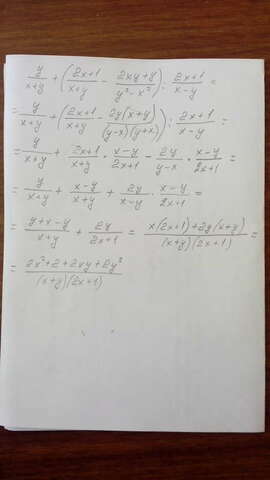 y/(x+y) + ((2x+1)/(x+y) - (2xy+y)/(y²-x²)) : (2x+1)/(x-y) =
= y/(x+y) + ((2x+1)/(x+y) - 2y(x+y)/((y-x)(y+x))) : (2x+1)/(x-y) =
= y/(x+y) + (2x+1)/(x+y) · (x-y)/(2x+1) - 2y/(y-x) · (x-y)/(2x+1) =
= y/(x+y) + (x-y)/(x+y) + 2y/(x-y) · (x-y)/(2x+1) =
= (y+x-y)/(x+y) + 2y/(2x+1) = (x(2x+1)+2y(x+y))/((x+y)(2x+1)) =
= (2x²+2+2xy+2y²)/((x+y)(2x+1))